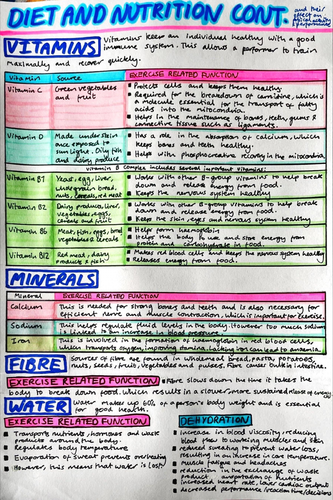 DIET AND NUTRITION CONT.
VITAMINS
Vitamins keep an individual healthy with a good
immune system. This allows a performer to train
maximally and recover quickly.
Vitamin Source EXERCISE RELATED FUNCTION
Vitamin C Green vegetables and fruit
Protects cells and keeps them healthy
Required for the breakdown of carnitine, which is a
molecule essential for the transport of fatty
acids into the mitochondria.
Helps in the maintenance of bones, teeth, gums &
connective tissue such as ligaments.
Vitamin D Made under skin once exposed to sunlight. Oily fish and dairy produce
Has a role in the absorption of calcium, which
keeps bones and teeth healthy.
Helps with phosphocreatine recovery in the mitochondria
Vitamin B complex includes several important vitamins:
Vitamin B1 Yeast, egg, liver, wholegrain bread, nuts, cereals, red meat
Works with other B-group vitamins to help break
down and release energy from food.
Keeps the nervous system healthy
Vitamin B2 Dairy produce, liver, vegetables, eggs, cereals and fruit
Works with other B-group vitamins to help break
down and release energy from food.
Keeps the skin, eyes and nervous system healthy
Vitamin B6 Meat, fish, eggs, bread, vegetables & cereals
Helps form haemoglobin
Helps the body to use and store energy from
protein and carbohydrate in food.
Vitamin B12 Red meat, dairy products & fish
Makes red blood cells and keeps the nervous system healthy
Releases energy from food.
MINERALS
Mineral EXERCISE RELATED FUNCTION
Calcium This is needed for strong bones and teeth and is also necessary for
efficient nerve and muscle contraction, which is important for exercise.
Sodium This helps regulate fluid levels in the body. However too much sodium
is linked to an increase in blood pressure.
Iron This is involved in the formation of haemoglobin in red blood cells,
which transports oxygen, improving stamina. Lack of iron can lead to anaemia.
FIBRE
Sources of fibre are found in wholemeal bread, pasta, potatoes,
nuts, seeds, fruit, vegetables and pulses. Fibre causes bulk in intestine.
EXERCISE RELATED FUNCTION Fibre slows down the time it takes the
body to break down food, which results in a slower, more sustained release of energy
WATER
Water makes up 60% of a person's body weight and is essential
for good health.
EXERCISE RELATED FUNCTION
Transports nutrients, hormones and waste
products around the body.
Regulates body temperature.
Evaporation of sweat prevents overheating
However, this means that water is lost!
DEHYDRATION
increase in blood viscosity, reducing
blood flow to working muscles and skin
reduced sweating to prevent water loss,
resulting in an increase in core temperature.
muscle fatigue and headaches
reduction in the exchange of waste
increased heart rate, lower cardiac output
decreased performance/reaction time/decisions